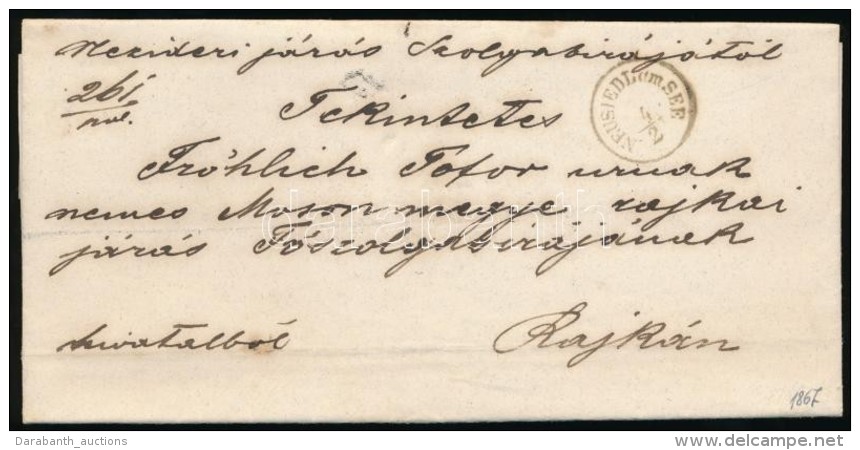 Nezideri járás Szolgabirájától
261
/pol.
NEUSIEDL am SEE
4/2
Tekintetes
Fröhlich Fófor urnak
nemes Moson megye rajkai
járás Főszolgabirájának
hivatalból
Rajkán
1867
darabanth
Darabanth_auctions
www.delcampe.net